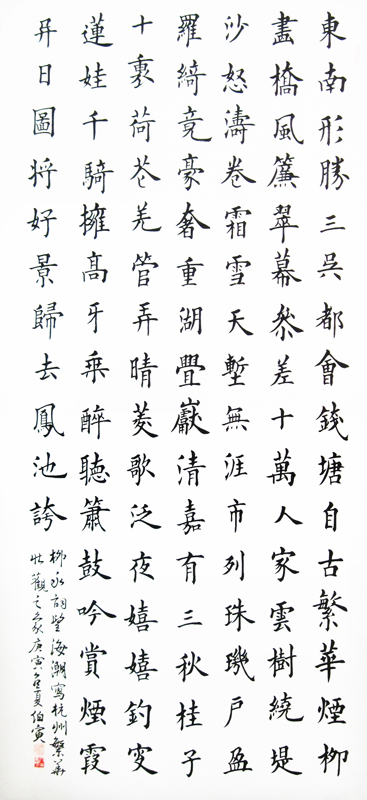 東南形勝三吳都會錢塘自古繁華煙柳
畫橋風簾翠幕叅差十萬人家雲樹繞堤
沙怒濤卷霜雪天塹無涯市列珠璣戶盈
羅綺竟豪奢重湖疊巘清嘉有三秋桂子
十裏荷花羌管弄晴菱歌泛夜嬉嬉釣叟
蓮娃千騎擁髙牙乘醉聽簫鼓吟賞煙霞
异日圖將好景歸去鳳池誇
柳永詞望海潮寫杭州繁華
壯觀之象庚寅年夏伯寅